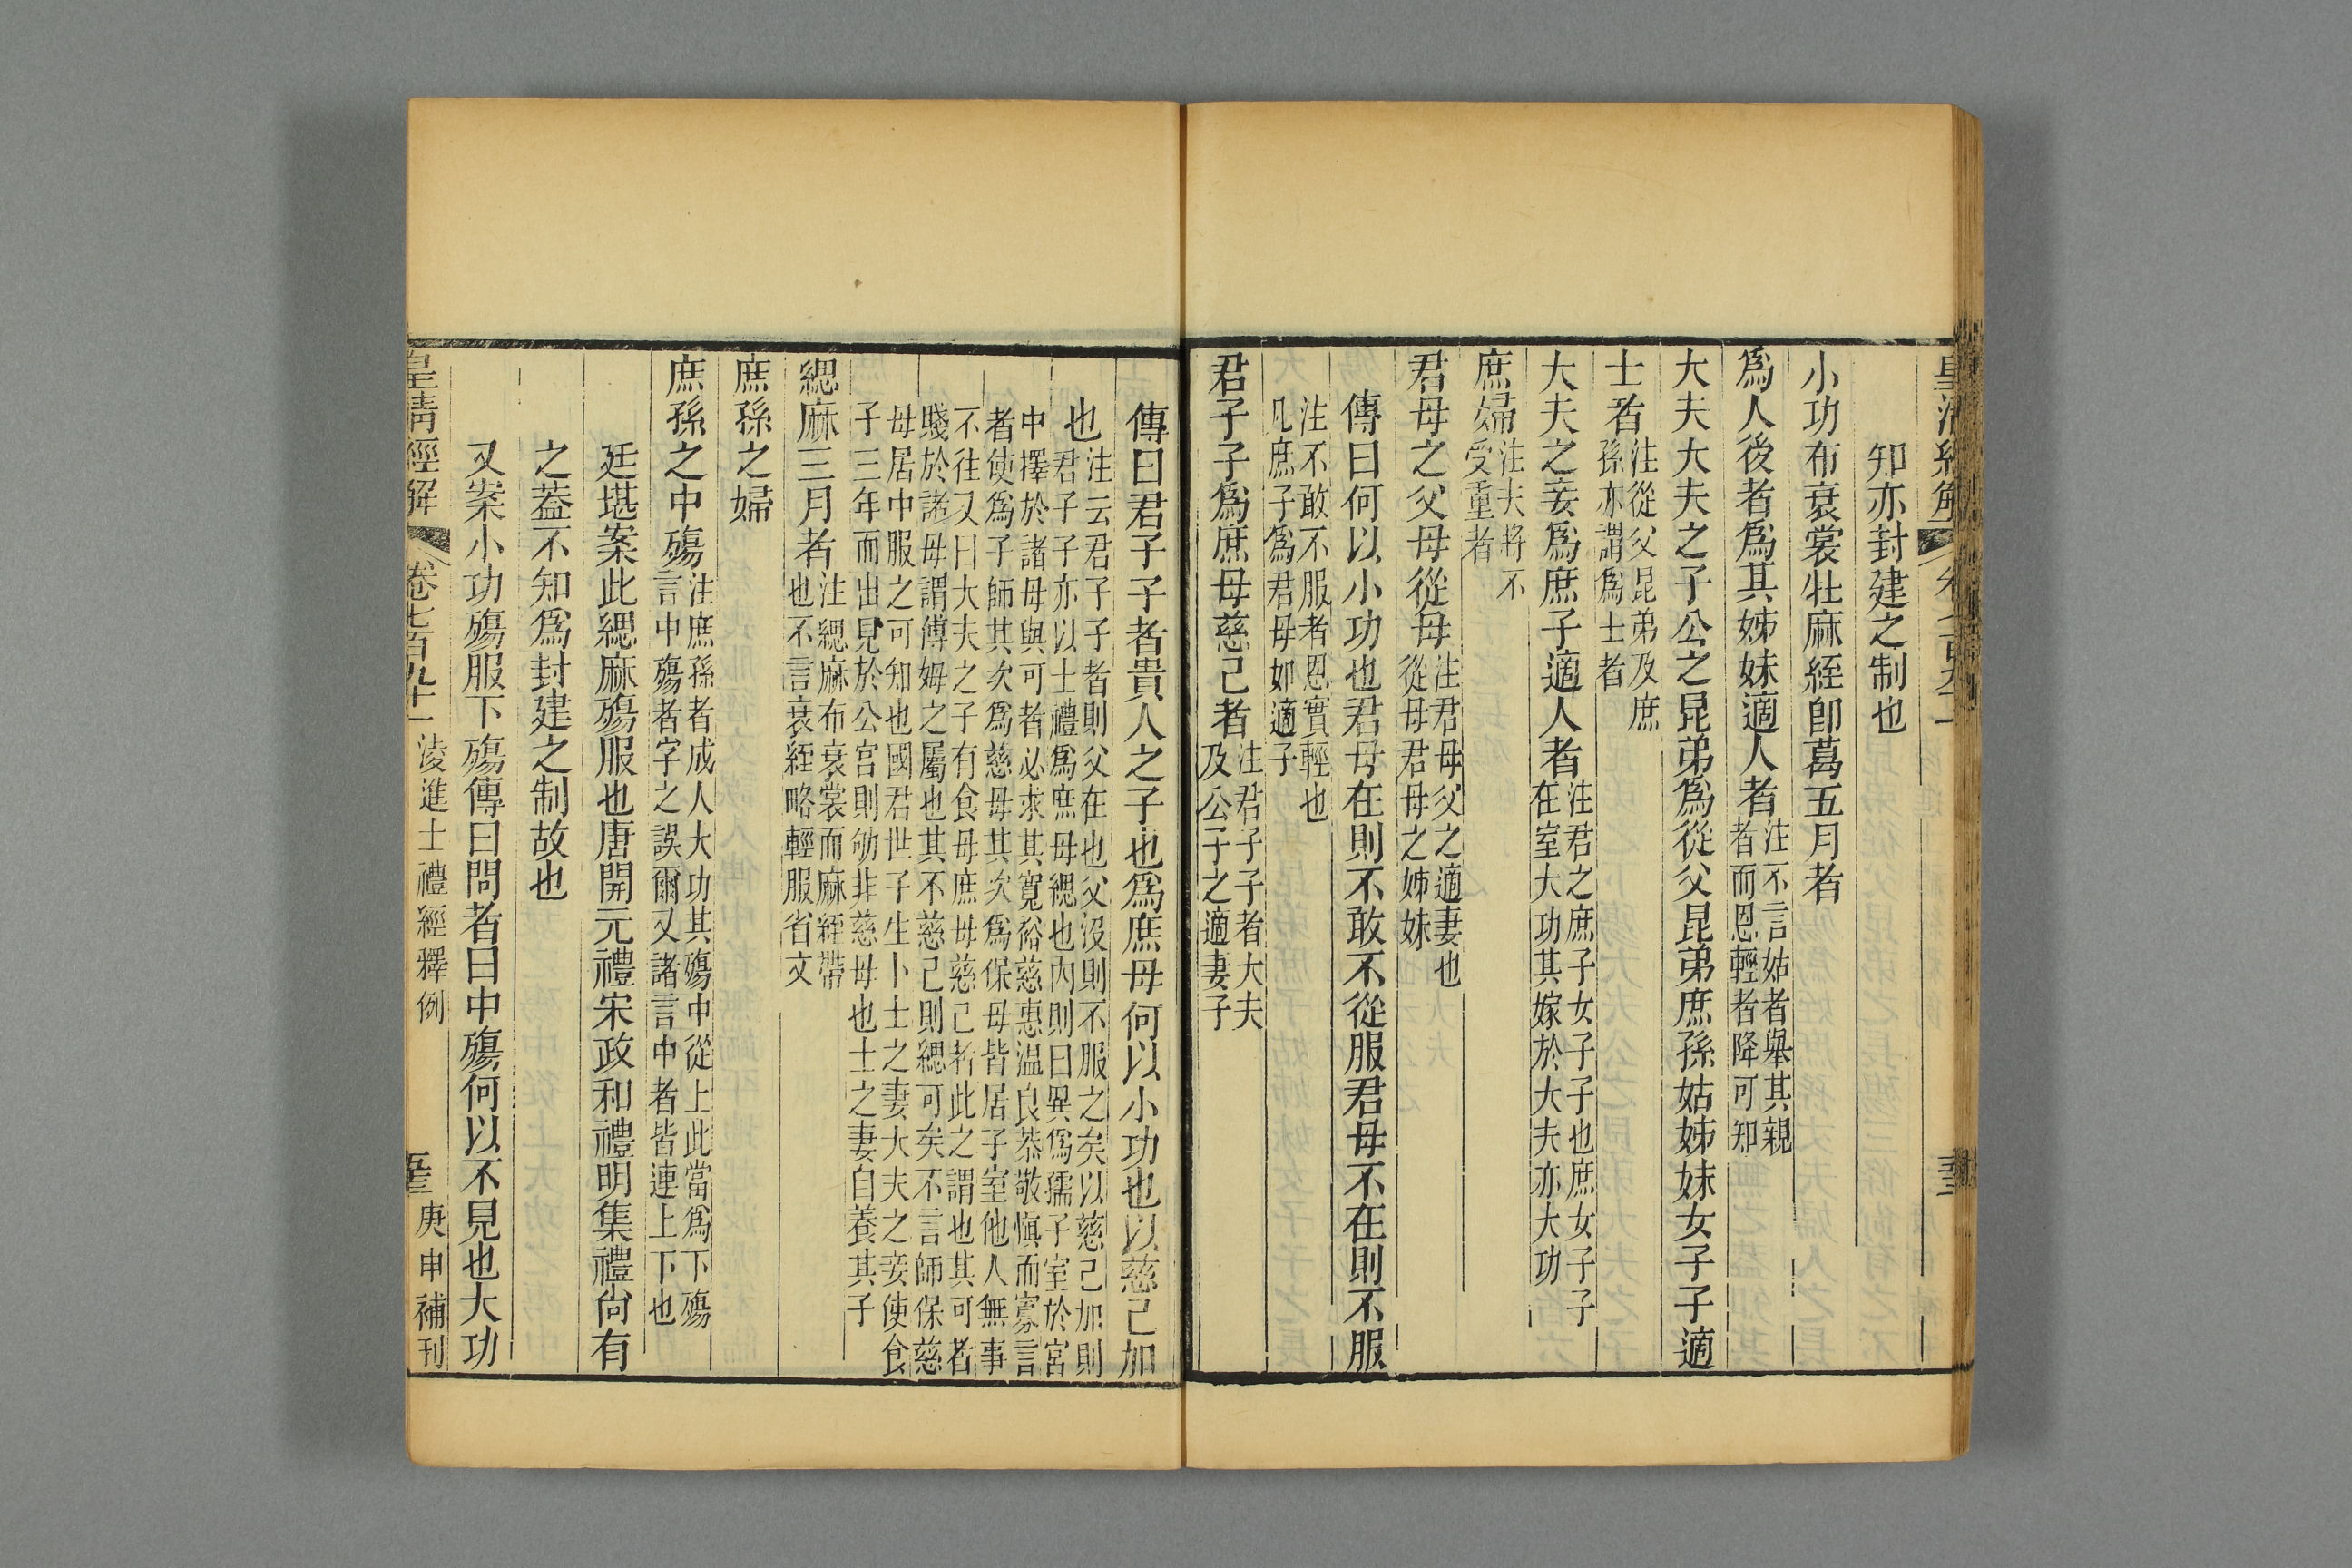 知亦封建之制也
小功布衰裳牡麻絰卽葛五月者
爲人後者爲其姊妹適人者注不言姑者舉其親
者而恩輕者降可知
大夫大夫之子公之昆弟爲從父昆弟庶孫姑姊妹女子子適
士者注從父昆弟及庶
孫亦謂爲士者
大夫之妾爲庶子適人者注君之庶子女子子也庶女子子
在室大功其嫁於大夫亦大功
庶婦注夫將不
受重者
君母之父母從母注君母父之適妻也
從母君母之姊妹
傳曰何以小功也君母在則不敢不從服君母不在則不服
注不敢不服者恩實輕也
凡庶子爲君母如適子
君子子爲庶母慈己者注君子子者大夫
及公子之適妻子
傳曰君子子者貴人之子也爲庶母何以小功也以慈己加
也注云君子子者則父在也父沒則不服之矣以慈己加則
君子子亦以士禮爲庶母緦也內則曰異爲孺子室於宮
中擇於諸母與可者必求其寬裕慈惠温良恭敬愼而寡言
者使爲子師其次爲慈母其次爲保母皆居子室他人無事
不往又曰大夫之子有食母庶母慈己者此之謂也其可者
賤於諸母謂傅姆之屬也其不慈己則緦可矣不言師保慈
母居中服之可知也國君世子生卜士之妻大夫之妾使食
子三年而出見於公宮則劬非慈母也士之妻自養其子
緦麻三月者注緦麻布衰裳而麻絰帶
也不言衰絰略輕服省文
庶孫之婦
庶孫之中殤注庶孫者成人大功其殤中從上此當爲下殤
言中殤者字之誤爾又諸言中者皆連上下也
廷堪案此緦麻殤服也唐開元禮宋政和禮明集禮尙有
之葢不知爲封建之制故也
又案小功殤服下殤傳曰問者曰中殤何以不見也大功
皇清經解 卷七百九十一 淩進士禮經釋例 庚申補刊